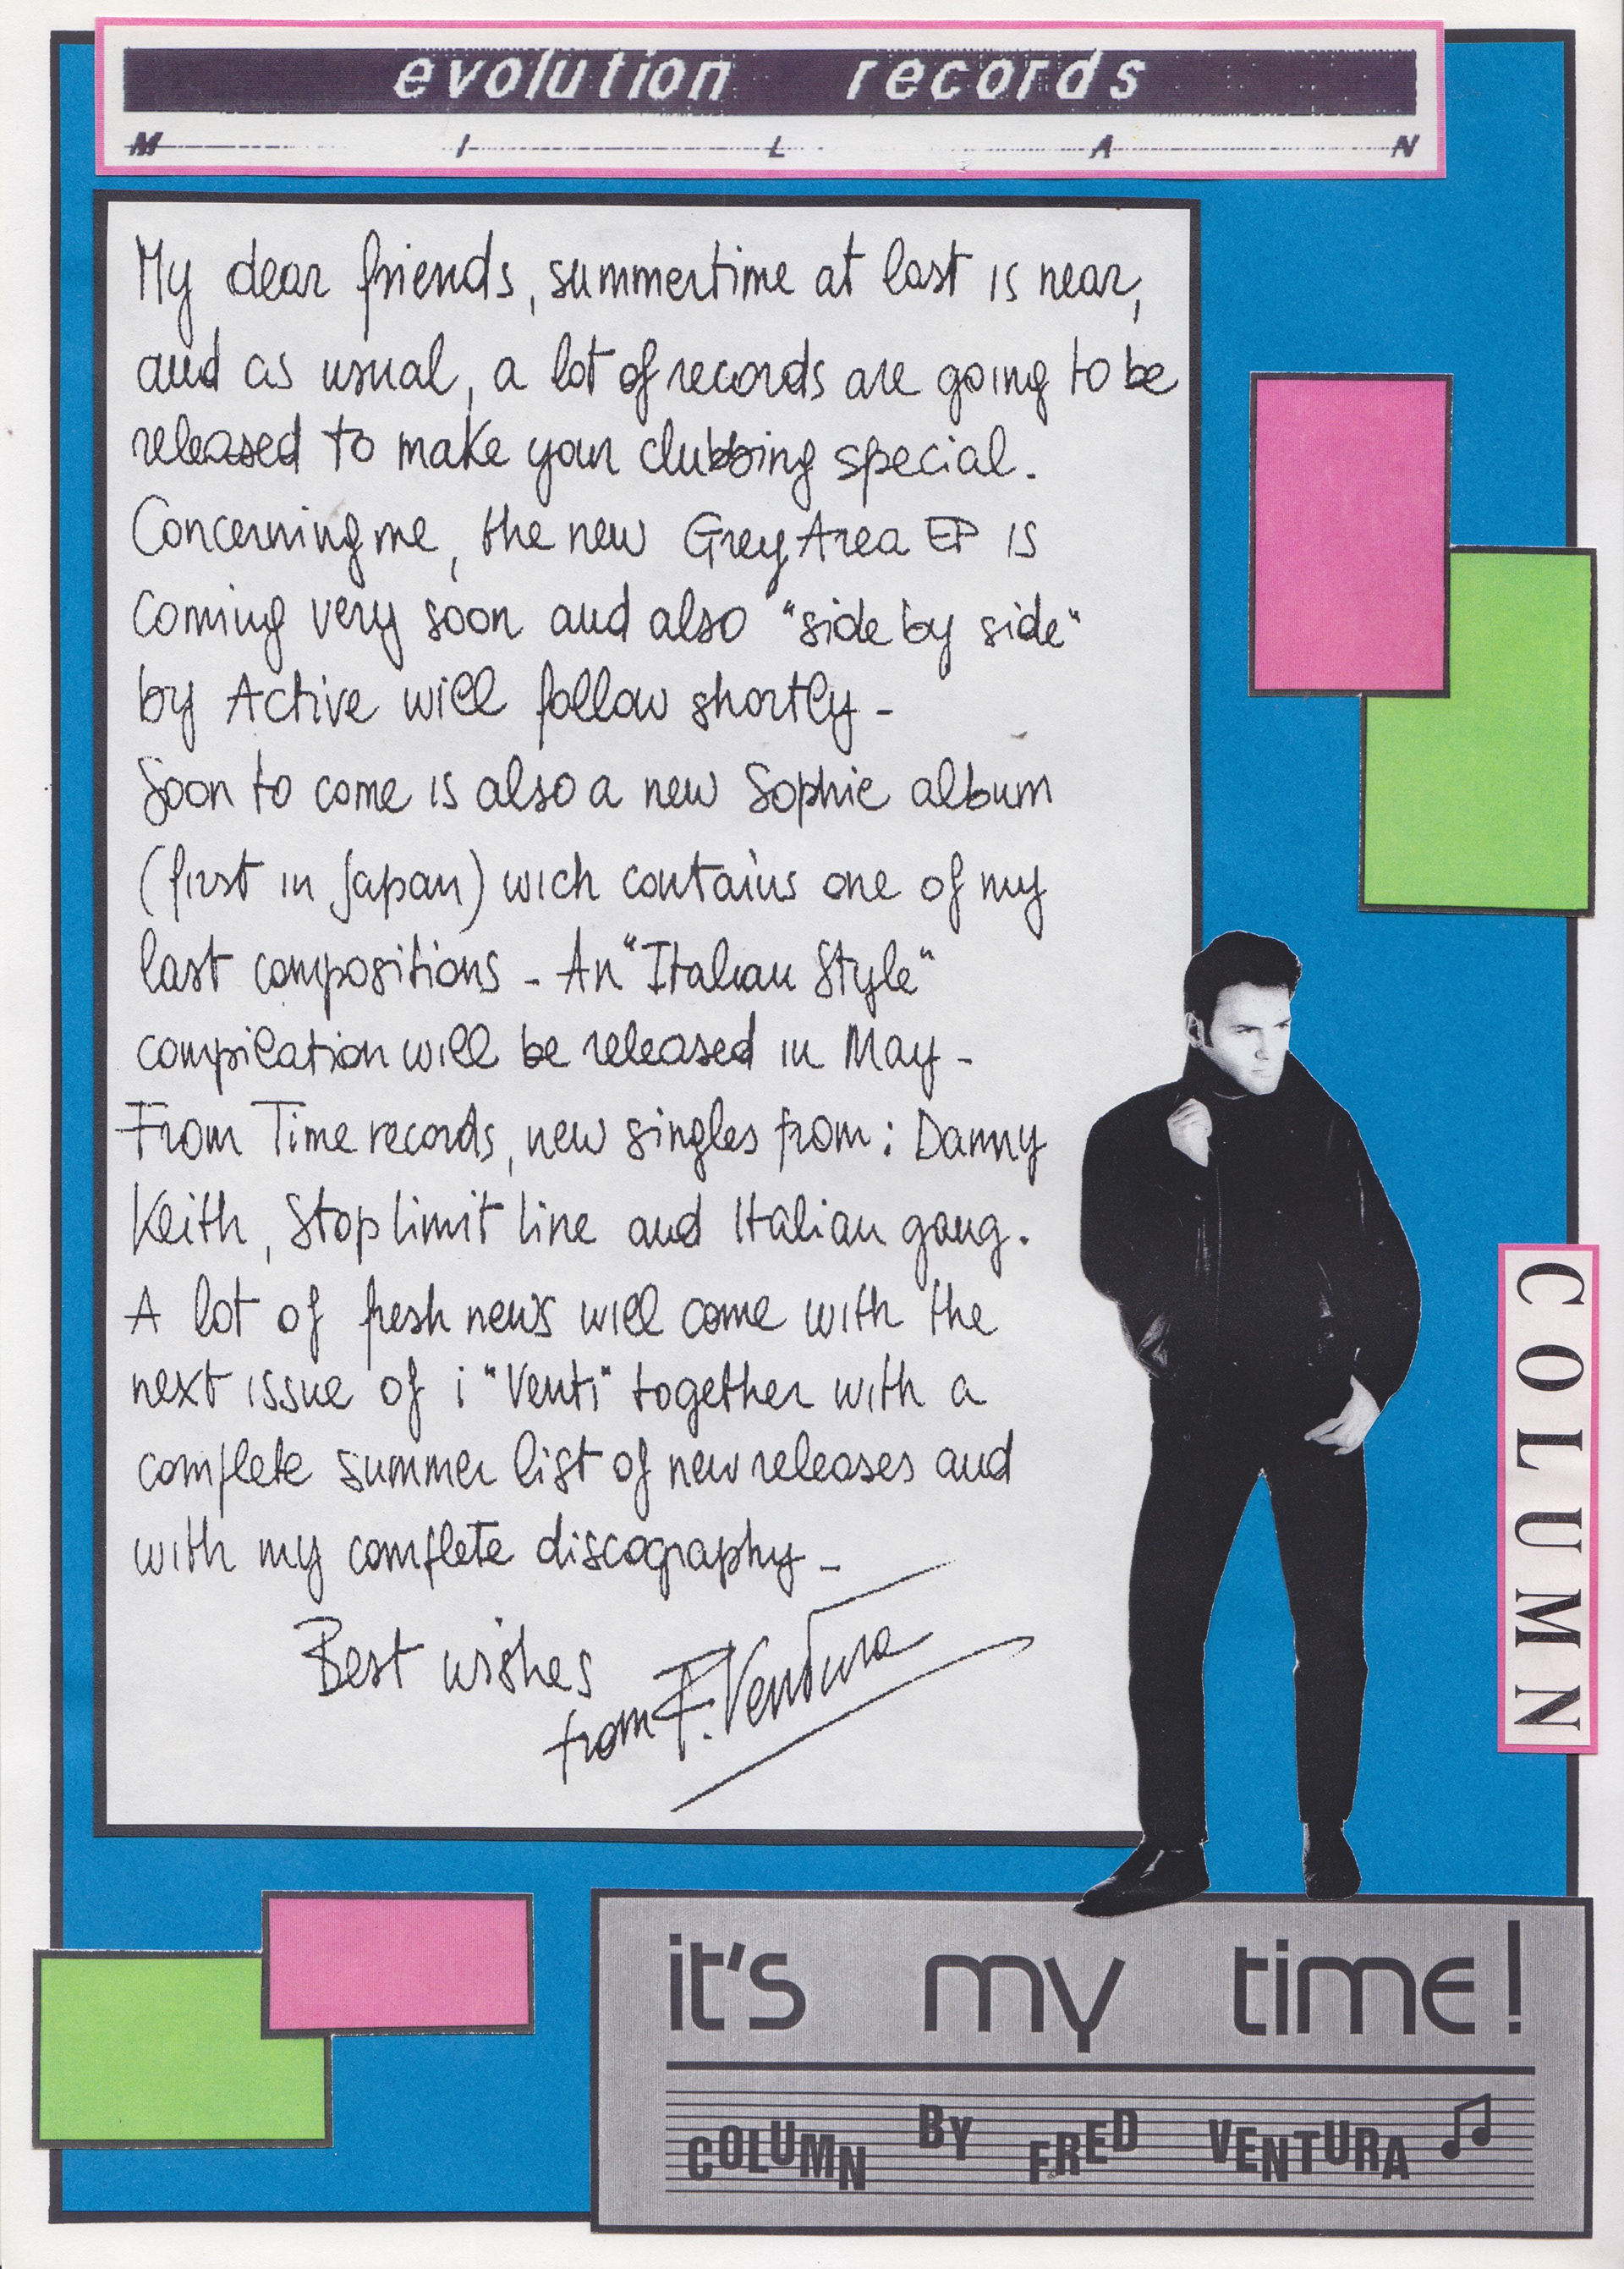 evolution records
M I L A N
My dear friends, summertime at last is near,
and as usual, a lot of records are going to be
released to make your clubbing special.
Concerning me, the new Grey Area EP is
coming very soon and also "side by side"
by Active will follow shortly -
Soon to come is also a new Sophie album
(first in Japan) wich contains one of my
last compositions - An "Italian Style"
compilation will be released in May -
From Time records, new singles from: Danny
Keith, Stop limit line and Italian gang.
A lot of fresh news will come with the
next issue of i "Venti" together with a
complete summer list of new releases and
with my complete discography -
Best wishes
from F. Ventura
COLUMN
it's my time!
COLUMN BY FRED VENTURA